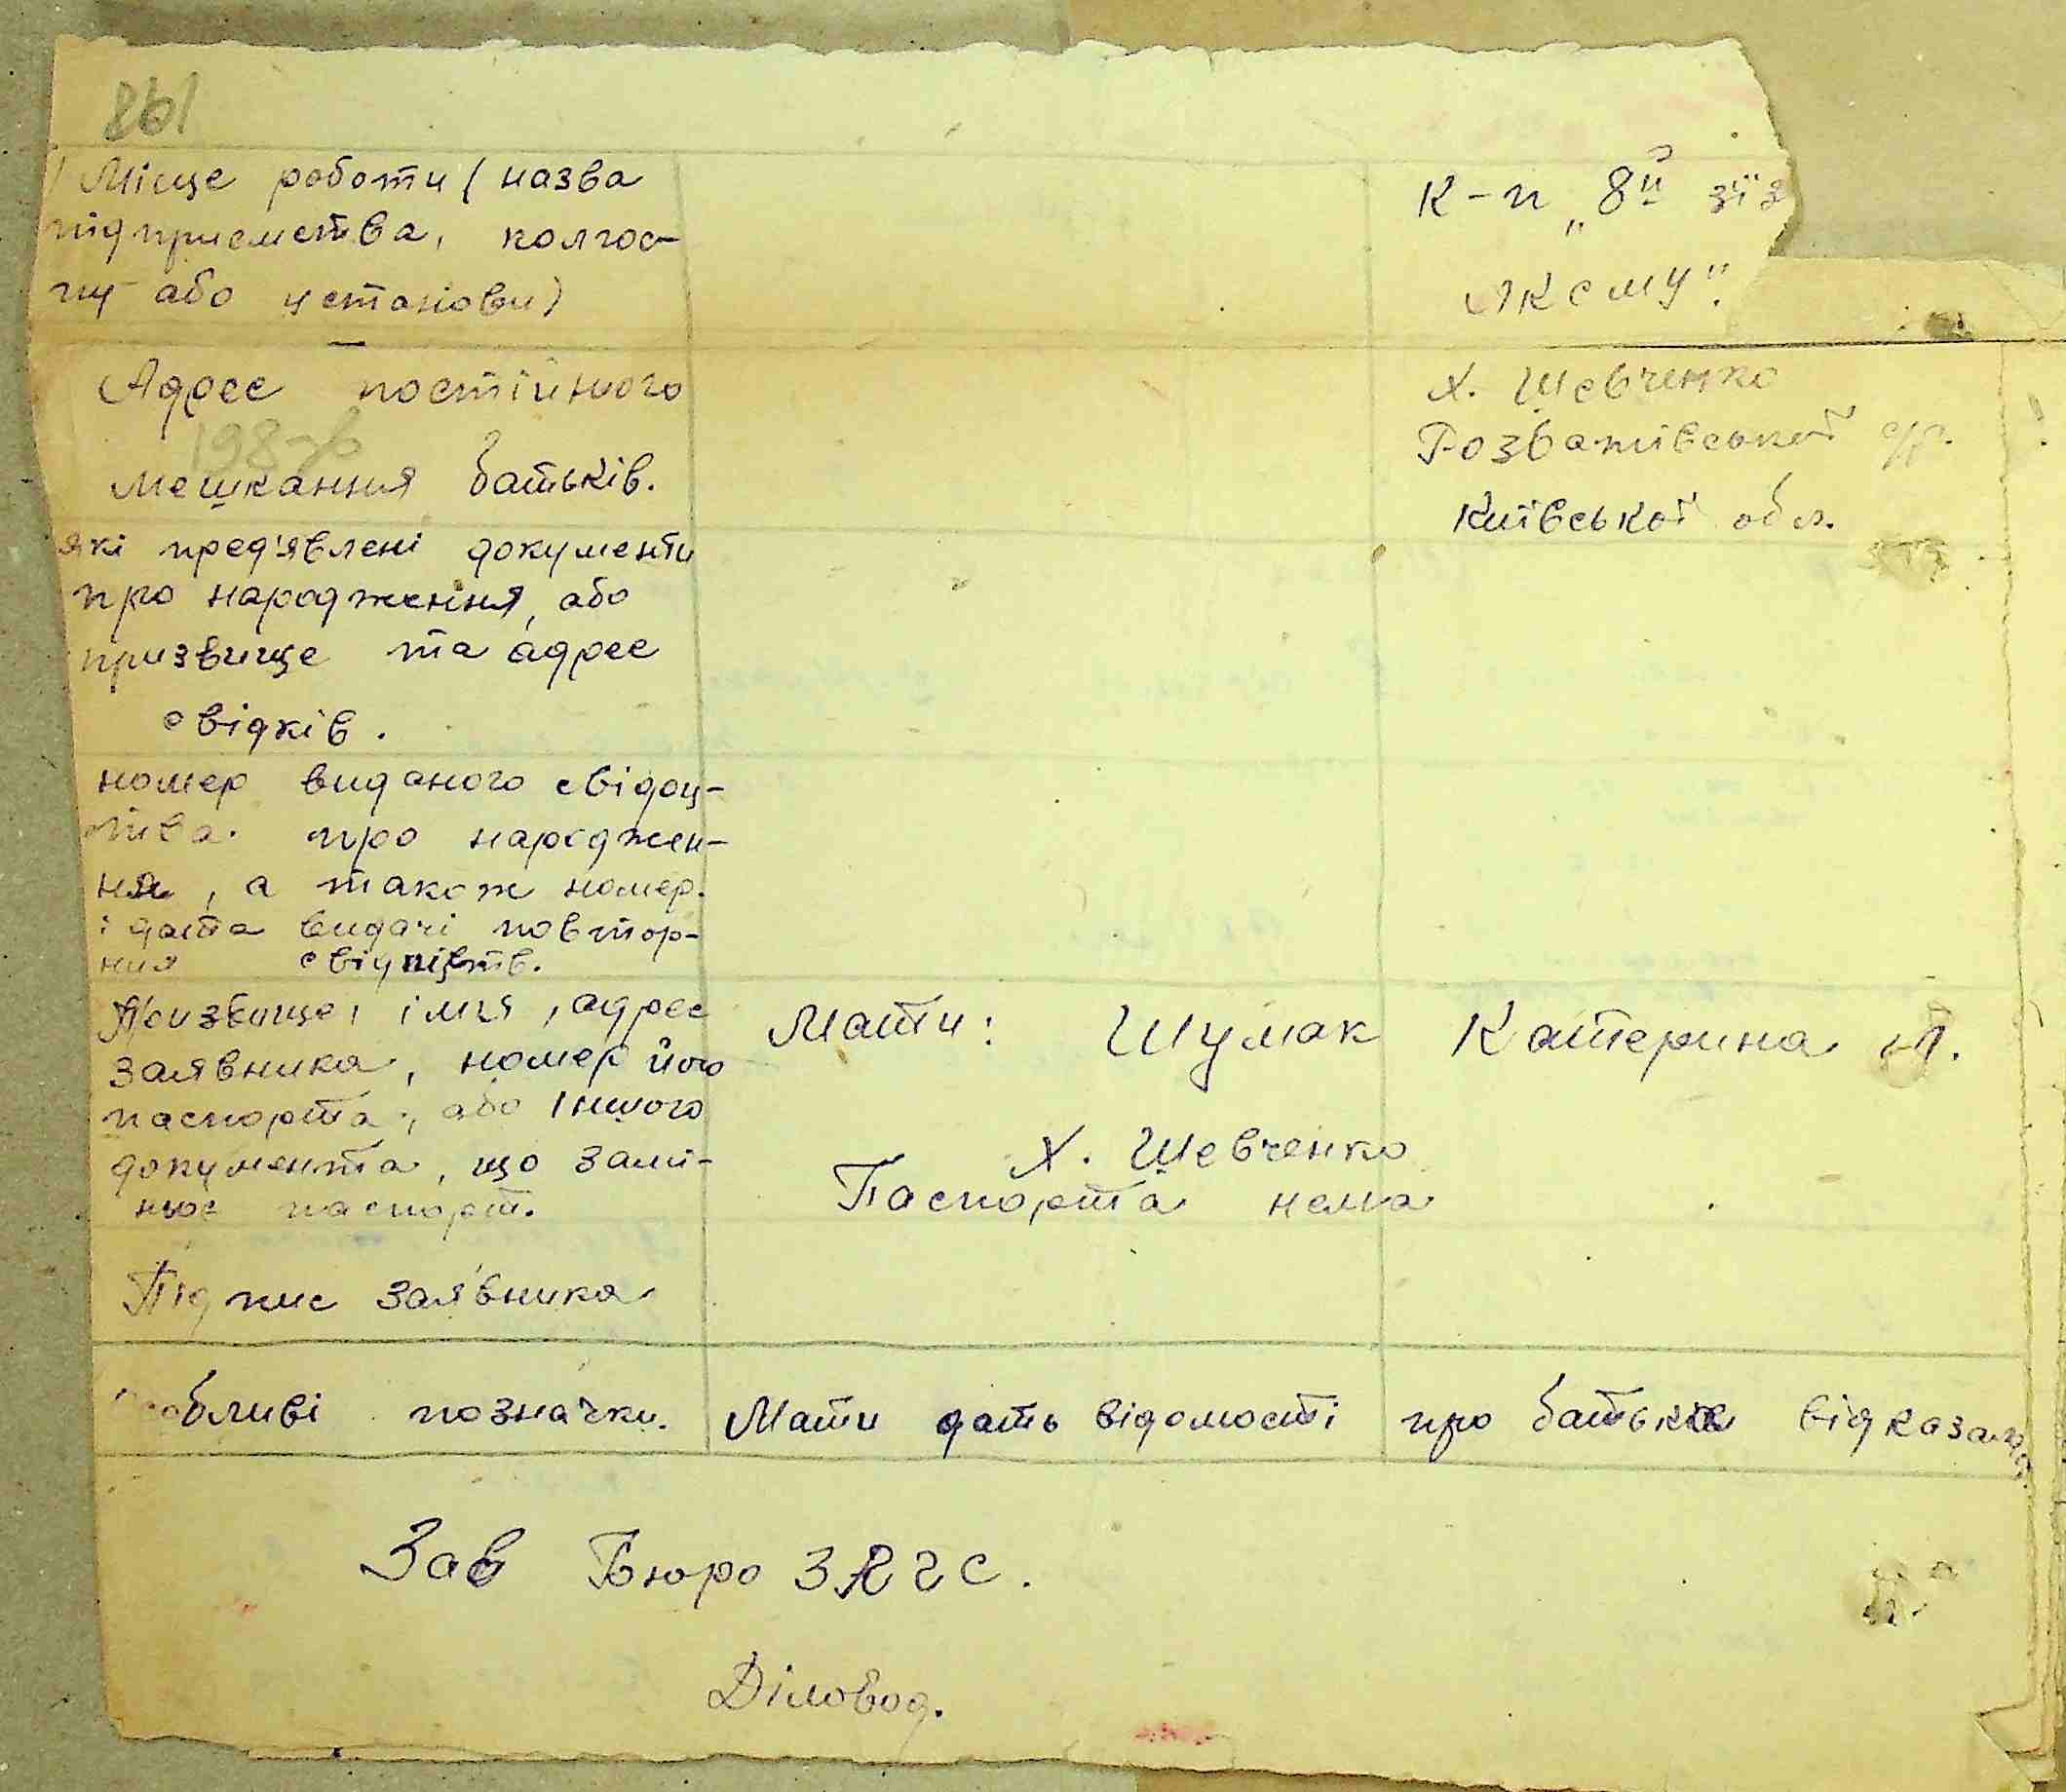 861
Місце роботи (назва
підприємства, колгос-
пу або установи)
К-п „8й зїз
ЛКСМУ".
Адрес постійного
198-
мешкання батьків.
Х. Шевченко
Розважівської с/р.
Київської обл.
які пред'явлені документи
про народження, або
призвище та адрес
свідків.
номер виданого свідоц-
тва про народжен-
ня, а також номер
і дата видачі повтор-
ния
Призвище, імя, адрес
заявника, номер його
паспорта, або іншого
документа, що замі-
нює паспорт.
Мати: Шумак Катерина
Х. Шевченко
Паспорта нема
Підпис заявника
обливі позначки.
Мати дать відомості про батька відказала
Зав Бюро ЗАГС.
Діловод.